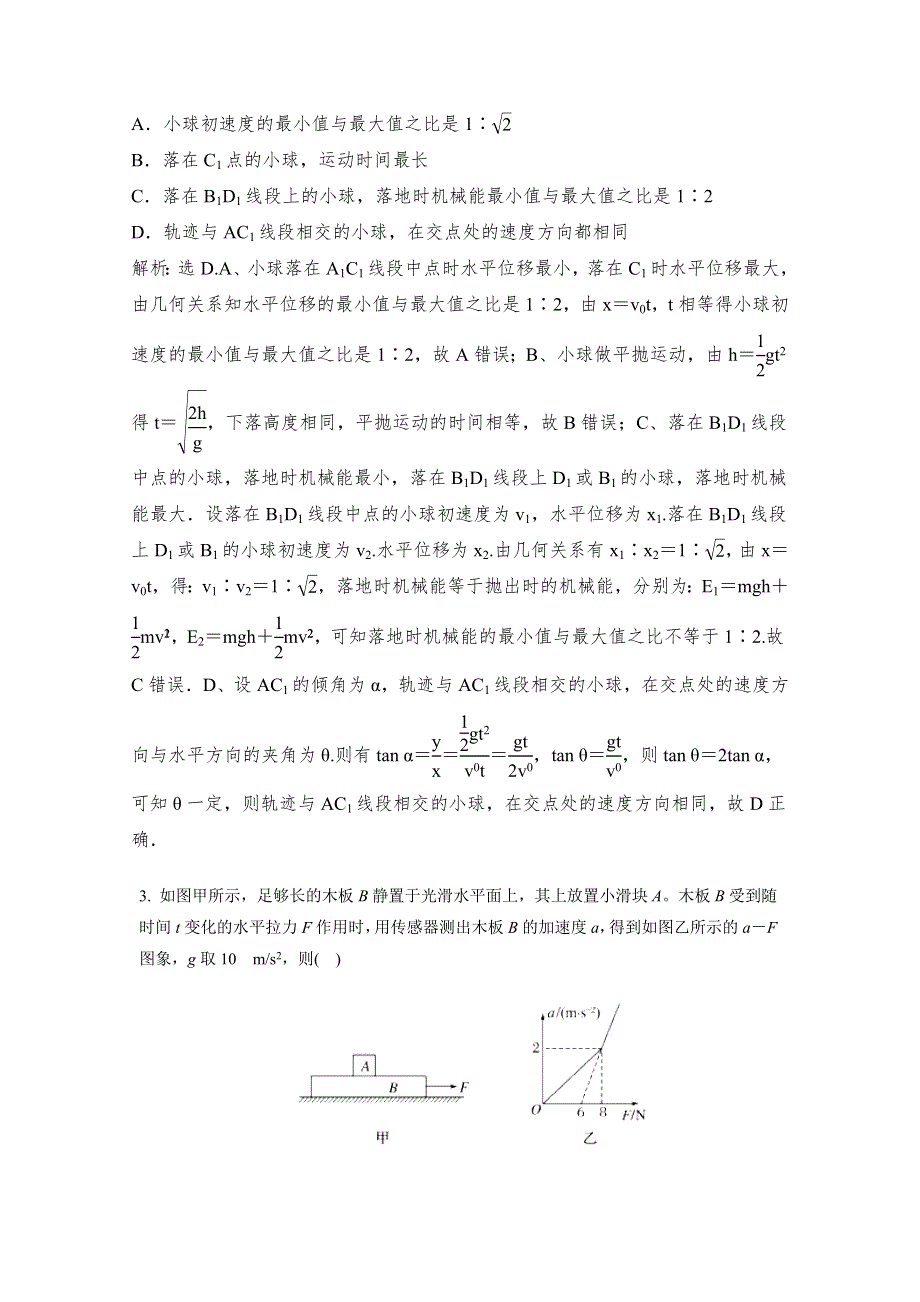 A．小球初速度的最小值与最大值之比是 1∶√2
B．落在 C₁ 点的小球，运动时间最长
C．落在 B₁D₁ 线段上的小球，落地时机械能最小值与最大值之比是 1∶2
D．轨迹与 AC₁ 线段相交的小球，在交点处的速度方向都相同
解析：选 D.A、小球落在 A₁C₁ 线段中点时水平位移最小，落在 C₁ 时水平位移最大，
由几何关系知水平位移的最小值与最大值之比是 1∶2，由 x＝v₀t，t 相等得小球初
速度的最小值与最大值之比是 1∶2，故 A 错误；B、小球做平抛运动，由 h＝1/2gt²
得 t＝√(2h/g)，下落高度相同，平抛运动的时间相等，故 B 错误；C、落在 B₁D₁ 线段
中点的小球，落地时机械能最小，落在 B₁D₁ 线段上 D₁ 或 B₁ 的小球，落地时机械
能最大．设落在 B₁D₁ 线段中点的小球初速度为 v₁，水平位移为 x₁.落在 B₁D₁ 线段
上 D₁ 或 B₁ 的小球初速度为 v₂.水平位移为 x₂.由几何关系有 x₁∶x₂＝1∶√2，由 x＝
v₀t，得：v₁∶v₂＝1∶√2，落地时机械能等于抛出时的机械能，分别为：E₁＝mgh＋
1/2mv²，E₂＝mgh＋1/2mv²，可知落地时机械能的最小值与最大值之比不等于 1∶2.故
C 错误．D、设 AC₁ 的倾角为 α，轨迹与 AC₁ 线段相交的小球，在交点处的速度方
向与水平方向的夹角为 θ.则有 tan α＝y/x＝(1/2gt²)/(v⁰t)＝gt/(2v⁰)，tan θ＝gt/v⁰，则 tan θ＝2tan α，
可知 θ 一定，则轨迹与 AC₁ 线段相交的小球，在交点处的速度方向相同，故 D 正
确．
3. 如图甲所示，足够长的木板 B 静置于光滑水平面上，其上放置小滑块 A。木板 B 受到随
时间 t 变化的水平拉力 F 作用时，用传感器测出木板 B 的加速度 a，得到如图乙所示的 a－F
图象，g 取 10 m/s²，则( )
A
B
F
甲
a/(m·s⁻²)
2
O
6
8
F/N
乙